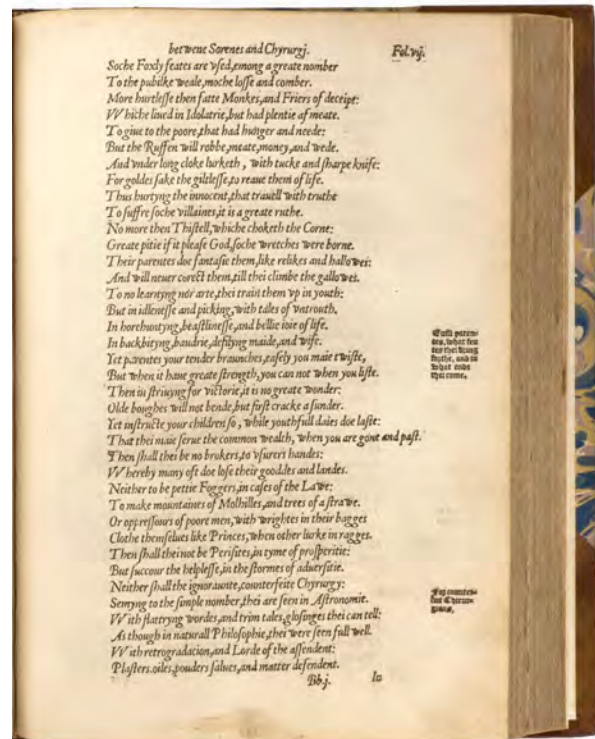 betwene Sorenes and Chyrurgj. Fol.vij.
Soche Foxly feates are vſed,emong a greate nomber
To the pubilke weale,moche loſſe and comber.
More hurtleſſe then fatte Monkes,and Friers of deceipt:
VVhiche liued in Idolatrie,but had plentie af meate.
To giue to the poore,that had hunger and neede:
But the Ruffen will robbe,meate,money,and wede.
And vnder long cloke lurketh, with tucke and ſharpe knife:
For goldes ſake the giltleſſe,to reaue them of life.
Thus hurtyng the innocent,that trauell with truthe
To ſuffre ſoche villaines,it is a greate ruthe.
No more then Thiſtell,whiche choketh the Corne:
Greate pitie if it pleaſe God,ſoche wretches were borne.
Their parentes doe fantaſie them,like relikes and hallowes:
And will neuer corect them,till thei climbe the gallowes.
To no learnyng nor arte,thei train them vp in youth:
But in idleneſſe and picking,with tales of vntrouth.
In horehuntyng,beaſtlineſſe,and bellie ioie of life.
In backbityng,baudrie,defilyng maide,and wife.
Yet parentes your tender braunches,eaſely you maie twiſte,
But when it haue greate ſtrength,you can not when you liſte.
Then in ſtriuyng for victorie,it is no greate wonder:
Olde boughes will not bende,but firſt cracke a ſunder.
Yet inſtructe your children ſo, while youthfull daies doe laſte:
That thei maie ſerue the common wealth, when you are gone and paſt.
Then ſhall thei be no brokers,to vſurers handes:
VVhereby many oft doe loſe their gooddes and landes.
Neither to be pettie Foggers,in caſes of the Lawe:
To make mountaines of Molhilles,and trees of a ſtrawe.
Or oppreſſours of poore men,with wrightes in their bagges
Clothe themſelues like Princes,when other lurke in ragges.
Then ſhall thei not be Periſites,in tyme of proſperitie:
But ſuccour the helpleſſe,in the ſtormes of aduerſitie.
Neither ſhall the ignoraunte,counterfeite Chyrurgy:
Semyng to the ſimple nomber,thei are ſeen in Aſtronomie.
VVith flattryng wordes,and trim tales,gloſinges thei can tell:
As though in naturall Philoſophie,thei were ſeen full well.
VVith retrogradacion,and Lorde of the aſſendent:
Plaſters.oiles,pouders ſalues,and matter defendent.
Bb.j. In
Euill paren-
tes, what
thei bring
forthe, and to
what ende
thei come.
For counter-
fet Chirur-
gians,